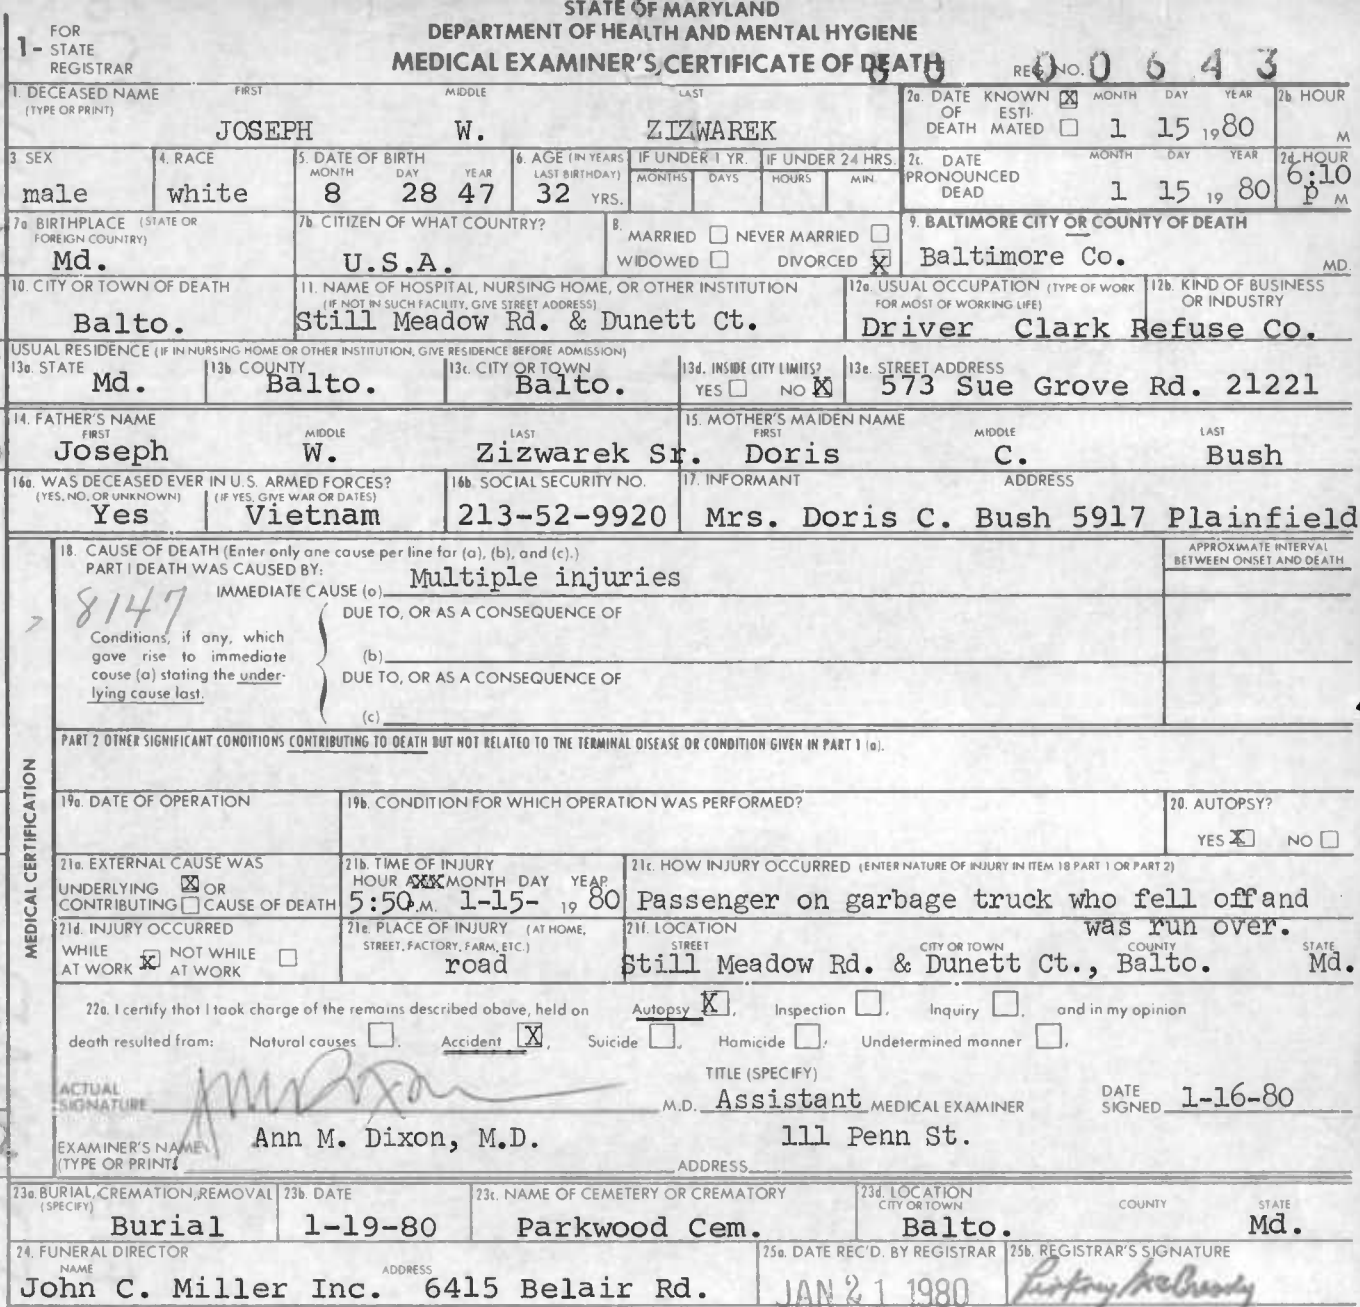 STATE OF MARYLAND
DEPARTMENT OF HEALTH AND MENTAL HYGIENE
MEDICAL EXAMINER'S CERTIFICATE OF DEATH
1- FOR STATE REGISTRAR
REG. NO. 80 00643
1. DECEASED NAME (TYPE OR PRINT) FIRST MIDDLE LAST
JOSEPH W. ZIZWAREK
2a. DATE OF DEATH KNOWN [X] ESTIMATED [ ] MONTH DAY YEAR 1 15 1980
2b. HOUR M
3. SEX male
4. RACE white
5. DATE OF BIRTH MONTH DAY YEAR 8 28 47
6. AGE (IN YEARS LAST BIRTHDAY) 32 YRS.
IF UNDER 1 YR. MONTHS DAYS
IF UNDER 24 HRS. HOURS MIN.
2c. DATE PRONOUNCED DEAD MONTH DAY YEAR 1 15 1980
2d. HOUR 6:10 P M
7a. BIRTHPLACE (STATE OR FOREIGN COUNTRY) Md.
7b. CITIZEN OF WHAT COUNTRY? U.S.A.
8. MARRIED [ ] NEVER MARRIED [ ] WIDOWED [ ] DIVORCED [X]
9. BALTIMORE CITY OR COUNTY OF DEATH Baltimore Co. MD.
10. CITY OR TOWN OF DEATH Balto.
11. NAME OF HOSPITAL, NURSING HOME, OR OTHER INSTITUTION (IF NOT IN SUCH FACILITY, GIVE STREET ADDRESS)
Still Meadow Rd. & Dunett Ct.
12a. USUAL OCCUPATION (TYPE OF WORK FOR MOST OF WORKING LIFE) Driver
12b. KIND OF BUSINESS OR INDUSTRY Clark Refuse Co.
USUAL RESIDENCE (IF IN NURSING HOME OR OTHER INSTITUTION, GIVE RESIDENCE BEFORE ADMISSION)
13a. STATE Md.
13b. COUNTY Balto.
13c. CITY OR TOWN Balto.
13d. INSIDE CITY LIMITS? YES [ ] NO [X]
13e. STREET ADDRESS 573 Sue Grove Rd. 21221
14. FATHER'S NAME FIRST MIDDLE LAST
Joseph W. Zizwarek Sr.
15. MOTHER'S MAIDEN NAME FIRST MIDDLE LAST
Doris C. Bush
16a. WAS DECEASED EVER IN U.S. ARMED FORCES? (YES, NO, OR UNKNOWN) (IF YES, GIVE WAR OR DATES)
Yes Vietnam
16b. SOCIAL SECURITY NO. 213-52-9920
17. INFORMANT ADDRESS
Mrs. Doris C. Bush 5917 Plainfield
MEDICAL CERTIFICATION
18. CAUSE OF DEATH (Enter only one cause per line for (a), (b), and (c).)
APPROXIMATE INTERVAL BETWEEN ONSET AND DEATH
PART I DEATH WAS CAUSED BY:
IMMEDIATE CAUSE (a) Multiple injuries
8147
DUE TO, OR AS A CONSEQUENCE OF
Conditions, if any, which gave rise to immediate cause (a) stating the underlying cause last.
(b)
DUE TO, OR AS A CONSEQUENCE OF
(c)
PART 2 OTHER SIGNIFICANT CONDITIONS CONTRIBUTING TO DEATH BUT NOT RELATED TO THE TERMINAL DISEASE OR CONDITION GIVEN IN PART 1 (a).
19a. DATE OF OPERATION
19b. CONDITION FOR WHICH OPERATION WAS PERFORMED?
20. AUTOPSY? YES [X] NO [ ]
21a. EXTERNAL CAUSE WAS UNDERLYING [X] OR CONTRIBUTING [ ] CAUSE OF DEATH
21b. TIME OF INJURY HOUR MONTH DAY YEAR
5:50 P.M. 1-15- 1980
21c. HOW INJURY OCCURRED (ENTER NATURE OF INJURY IN ITEM 18 PART 1 OR PART 2)
Passenger on garbage truck who fell off and
was run over.
21d. INJURY OCCURRED WHILE AT WORK [X] NOT WHILE AT WORK [ ]
21e. PLACE OF INJURY (AT HOME, STREET, FACTORY, FARM, ETC.) road
21f. LOCATION STREET CITY OR TOWN COUNTY STATE
Still Meadow Rd. & Dunett Ct., Balto. Md.
22a. I certify that I took charge of the remains described above, held on Autopsy [X], Inspection [ ], Inquiry [ ], and in my opinion
death resulted from: Natural causes [ ], Accident [X], Suicide [ ], Homicide [ ], Undetermined manner [ ],
ACTUAL SIGNATURE M.D.
TITLE (SPECIFY) Assistant MEDICAL EXAMINER
DATE SIGNED 1-16-80
EXAMINER'S NAME (TYPE OR PRINT) Ann M. Dixon, M.D.
ADDRESS 111 Penn St.
23a. BURIAL, CREMATION, REMOVAL (SPECIFY) Burial
23b. DATE 1-19-80
23c. NAME OF CEMETERY OR CREMATORY Parkwood Cem.
23d. LOCATION CITY OR TOWN COUNTY STATE
Balto. Md.
24. FUNERAL DIRECTOR NAME ADDRESS
John C. Miller Inc. 6415 Belair Rd.
25a. DATE REC'D. BY REGISTRAR JAN 21 1980
25b. REGISTRAR'S SIGNATURE